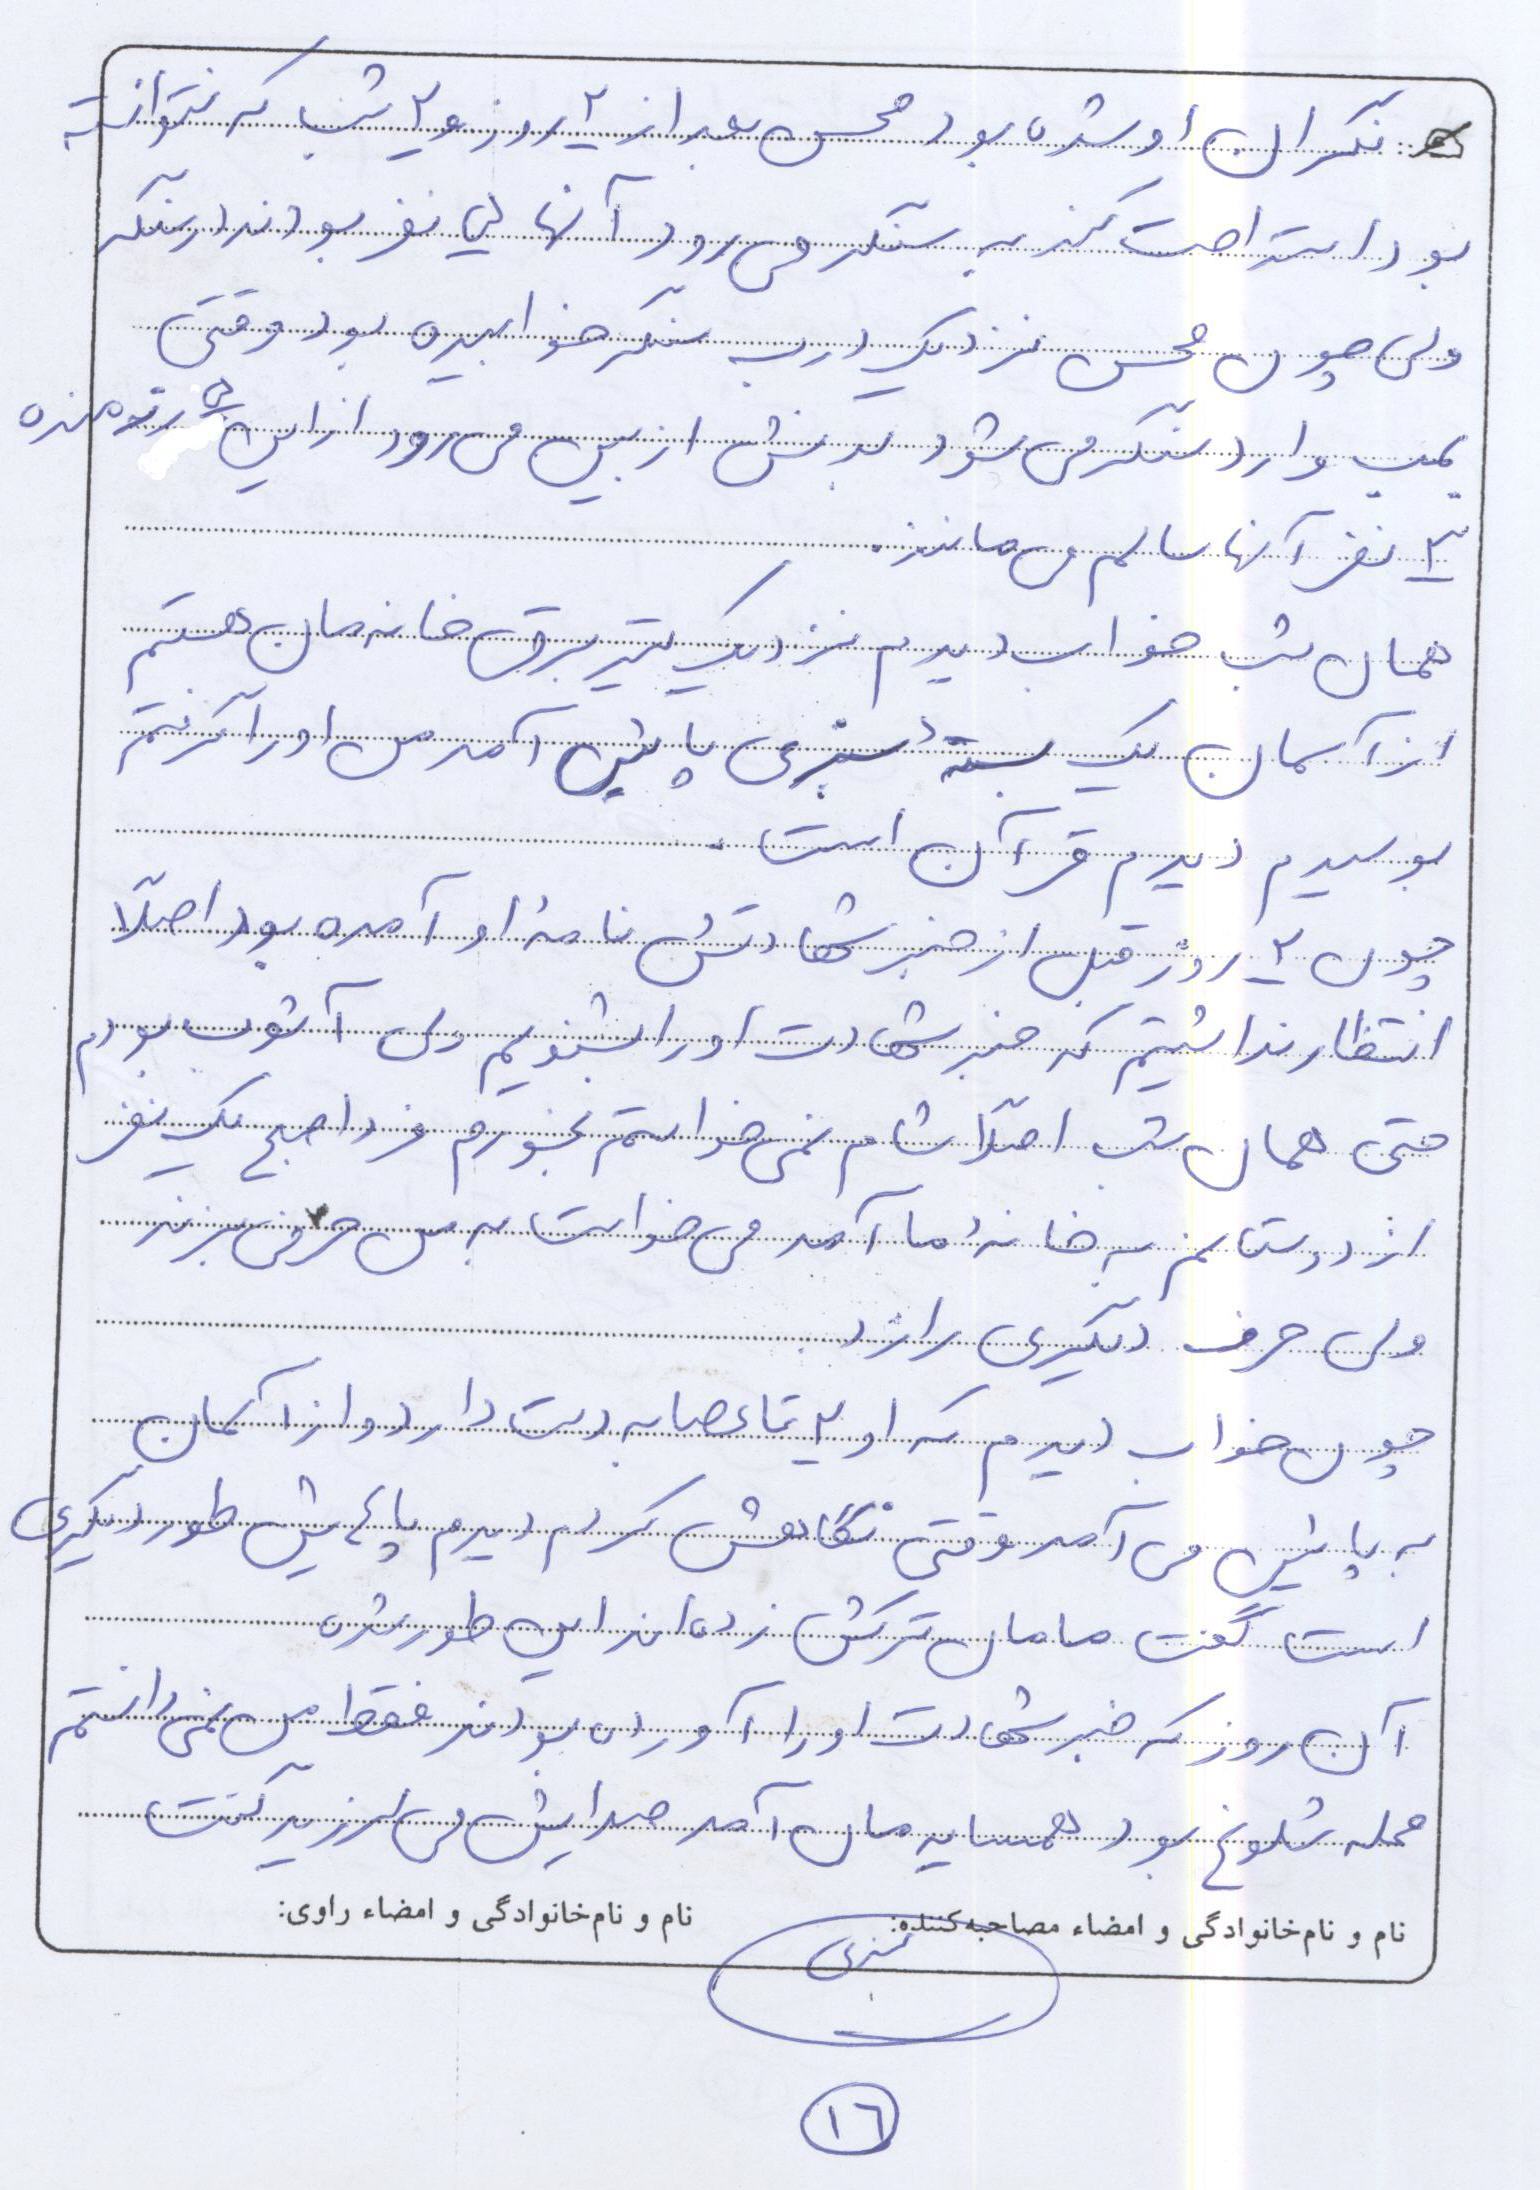 نگران او شده بود محسن بعد از ۲ روز و ۲ شب که نتوانسته
بود استراحت کند به سنگر می رود آنها نفر بودند در سنگر
ولی چون محسن نزدیک درب سنگر خوابیده بود وقتی
بمب وارد سنگر می شود بدنش از بین می رود از این رزمنده
۳ نفر آنها سالم می مانند.
همان شب خواب دیدم نزدیک تیر برق خانه مان هستم
از آسمان یک بستۀ سبزی پائین آمد من او را گرفتم
بوسیدم دیدم قرآن است.
چون ۲ روز قبل از خبر شهادتش نامۀ او آمده بود اصلاً
انتظار نداشتیم که خبر شهادت او را بشنویم ولی آشوب بودم
حتی همان شب اصلاً شام نمی خواستم بخورم فردا صبح یک نفر
از دوستانم به خانۀ ما آمد می خواست به من حرفی بزند
ولی حرف دیگری را زد.
چون خواب دیدم که او ۲ تا عصا به دست دارد و از آسمان
به پائین می آمد وقتی نگاهش کردم دیدم پاهایش طور دیگری
است گفت مامان ترکش زده اند این طور شده
آن روز که خبر شهادت او را آورده بودند فقط من نمی دانستم
محله شلوغ بود همسایه مان آمد صدایش می لرزید گفت
نام و نام‌خانوادگی و امضاء مصاحبه‌کننده: نام و نام‌خانوادگی و امضاء راوی:
۱۶